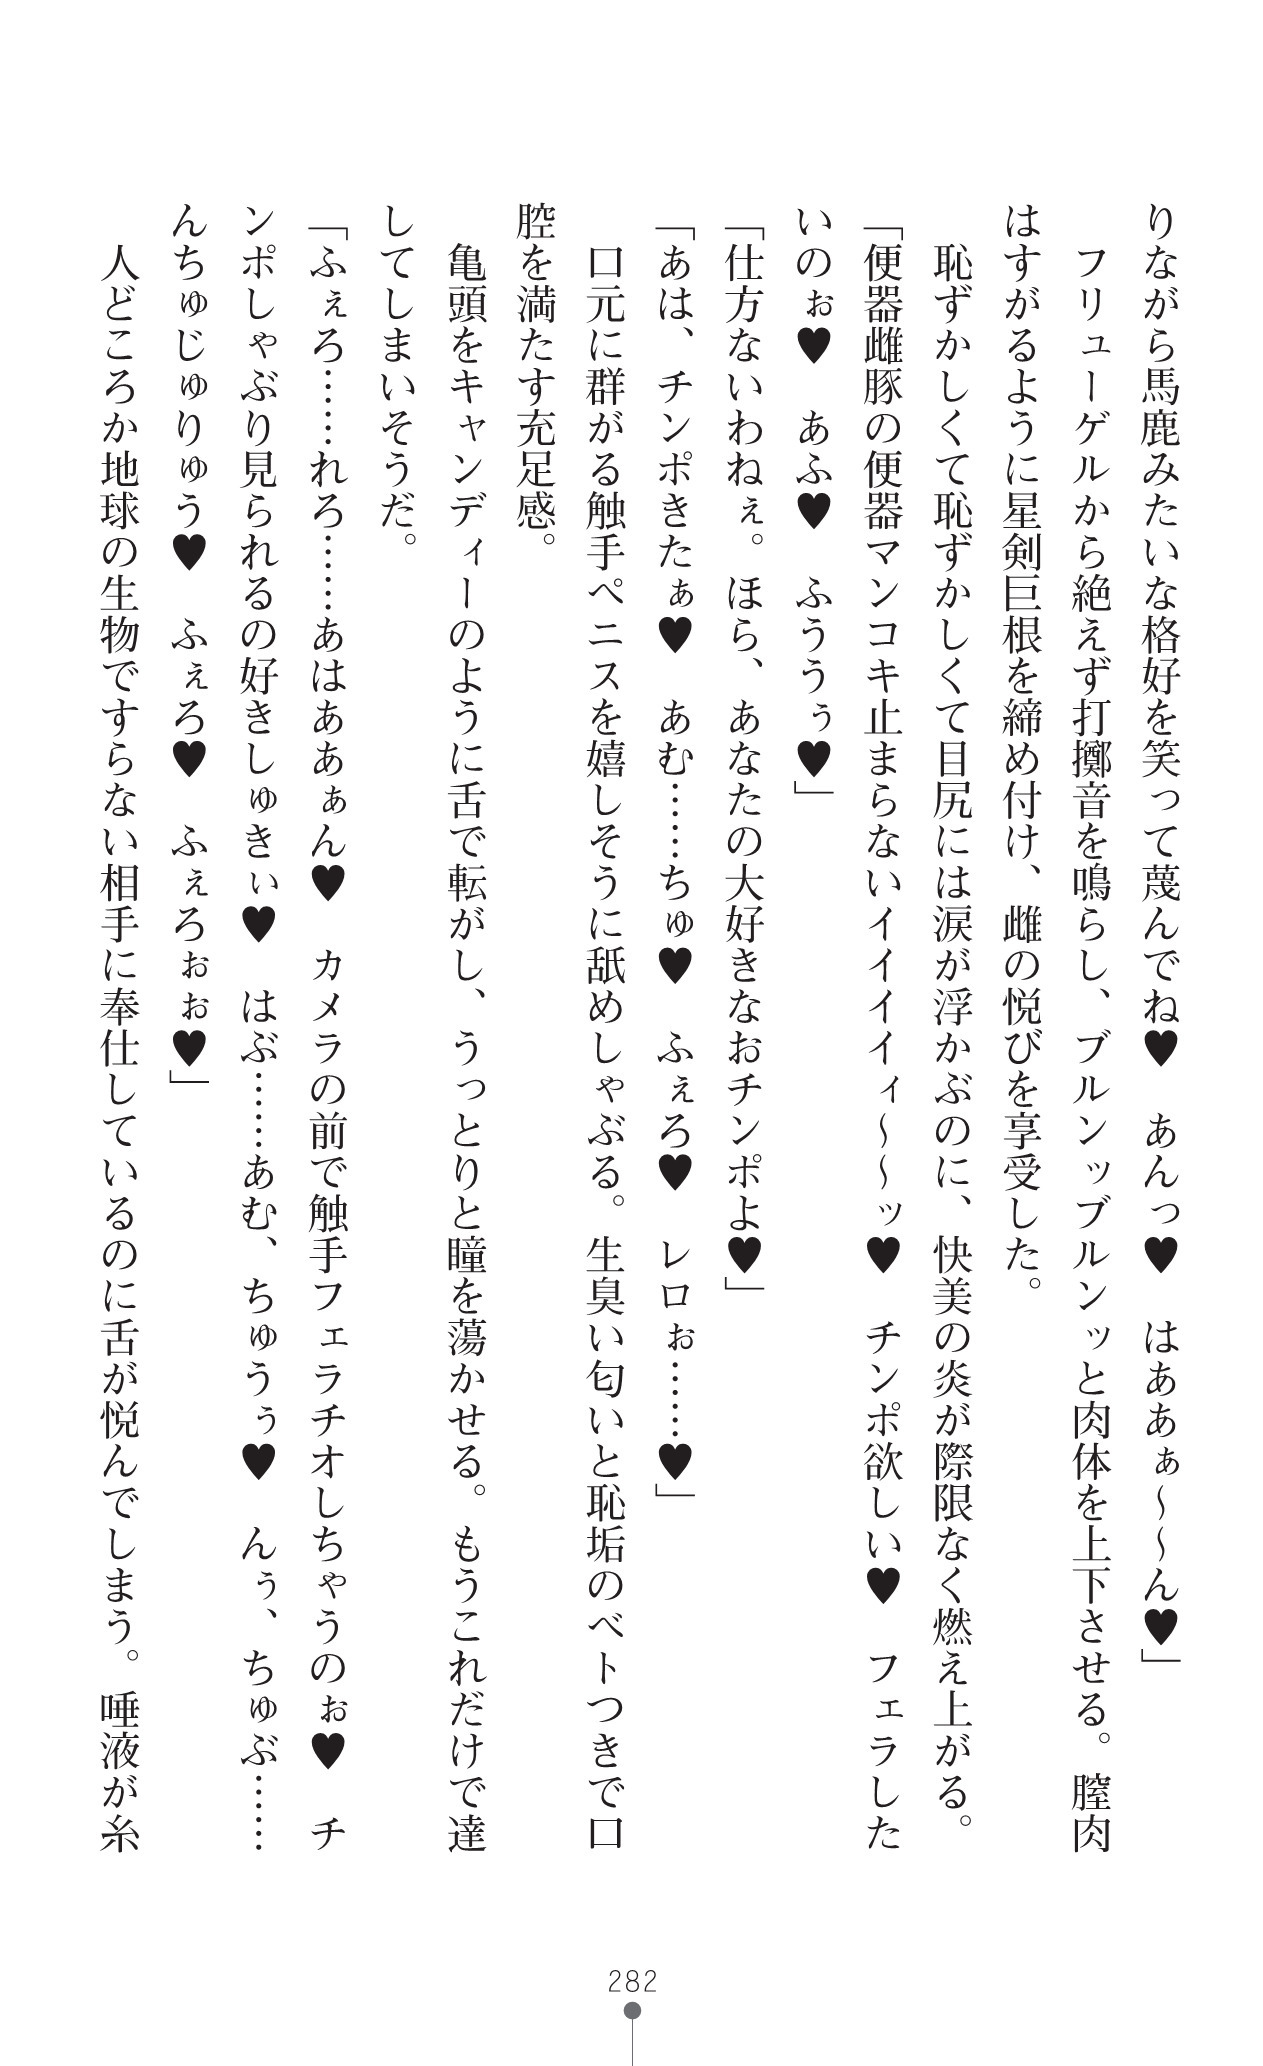 りながら馬鹿みたいな格好を笑って蔑んでね♥　あんっ♥　はああぁ～～ん♥」
　フリューゲルから絶えず打擲音を鳴らし、ブルンッブルンッと肉体を上下させる。膣肉
はすがるように星剣巨根を締め付け、雌の悦びを享受した。
　恥ずかしくて恥ずかしくて目尻には涙が浮かぶのに、快美の炎が際限なく燃え上がる。
「便器雌豚の便器マンコキ止まらないイイイイィ～～ッ♥　チンポ欲しい♥　フェラした
いのぉ♥　あふ♥　ふううぅ♥」
「仕方ないわねぇ。ほら、あなたの大好きなおチンポよ♥」
「あは、チンポきたぁ♥　あむ……ちゅ♥　ふぇろ♥　レロぉ……♥」
　口元に群がる触手ペニスを嬉しそうに舐めしゃぶる。生臭い匂いと恥垢のベトつきで口
腔を満たす充足感。
　亀頭をキャンディーのように舌で転がし、うっとりと瞳を蕩かせる。もうこれだけで達
してしまいそうだ。
「ふぇろ……れろ……あはああぁん♥　カメラの前で触手フェラチオしちゃうのぉ♥　チ
ンポしゃぶり見られるの好きしゅきぃ♥　はぶ……あむ、ちゅうぅ♥　んぅ、ちゅぶ……
んちゅじゅりゅう♥　ふぇろ♥　ふぇろぉぉ♥」
　人どころか地球の生物ですらない相手に奉仕しているのに舌が悦んでしまう。唾液が糸
282